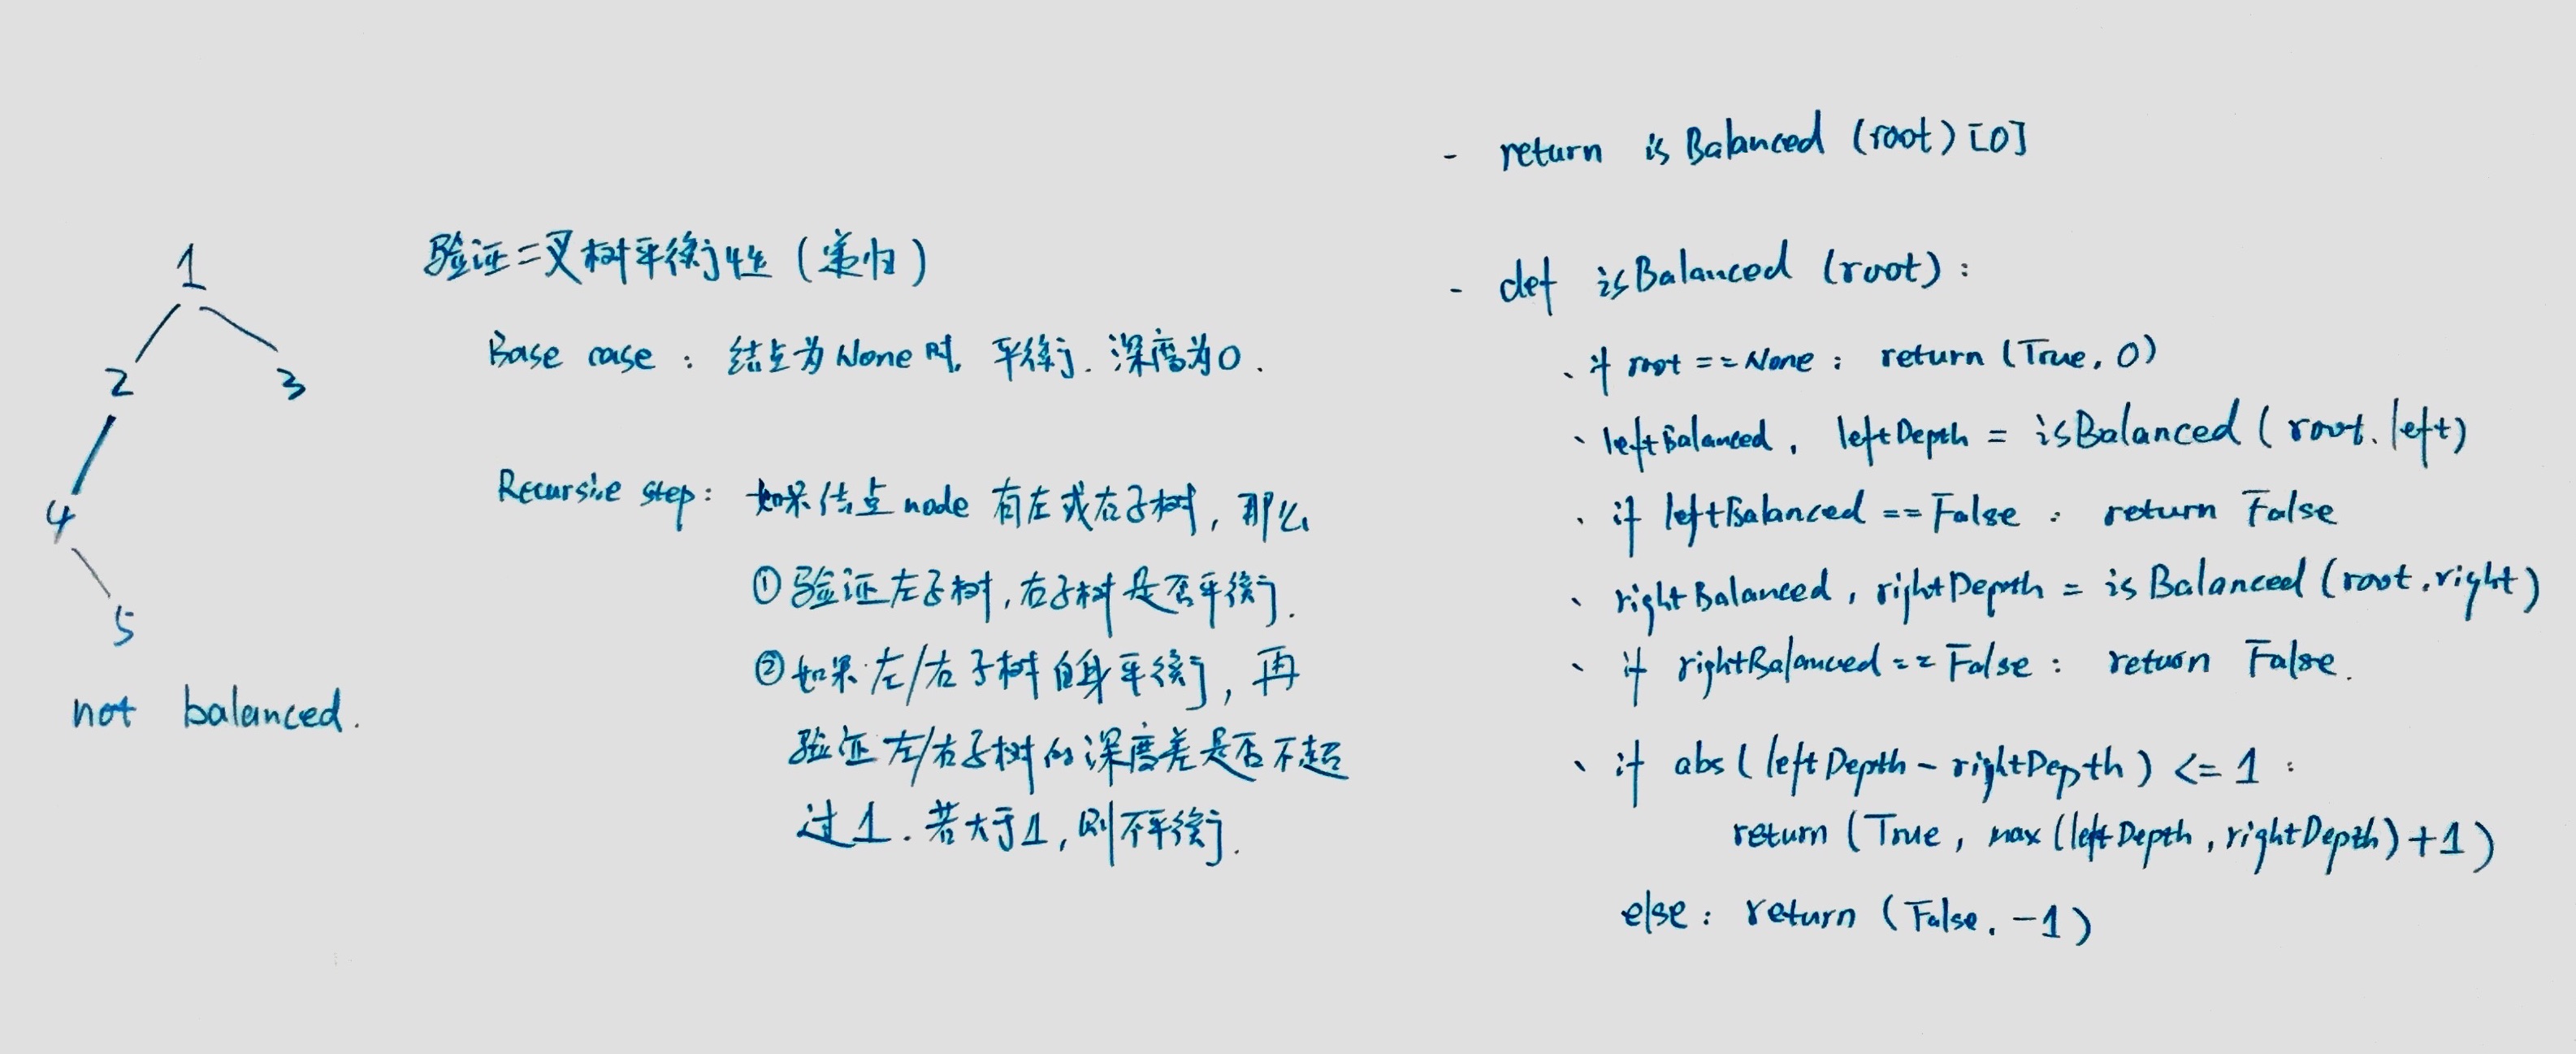 1
2 3
4
5
not balanced.
验证二叉树平衡性（递归）
Base case : 结点为None时, 平衡. 深度为0.
Recursive step: 如果结点 node 有左或右子树, 那么
① 验证左子树, 右子树是否平衡.
② 如果左/右子树自身平衡, 再
验证左/右子树的深度差是否不超
过1. 若大于1, 则不平衡.
- return isBalanced (root) [0]
- def isBalanced (root) :
、if root == None : return (True, 0)
、leftBalanced, leftDepth = isBalanced (root.left)
、if leftBalanced == False : return False
、rightBalanced, rightDepth = isBalanced (root.right)
、if rightBalanced == False : return False.
、if abs (leftDepth - rightDepth) <= 1 :
return (True, max (leftDepth, rightDepth) + 1)
else : return (False, -1)